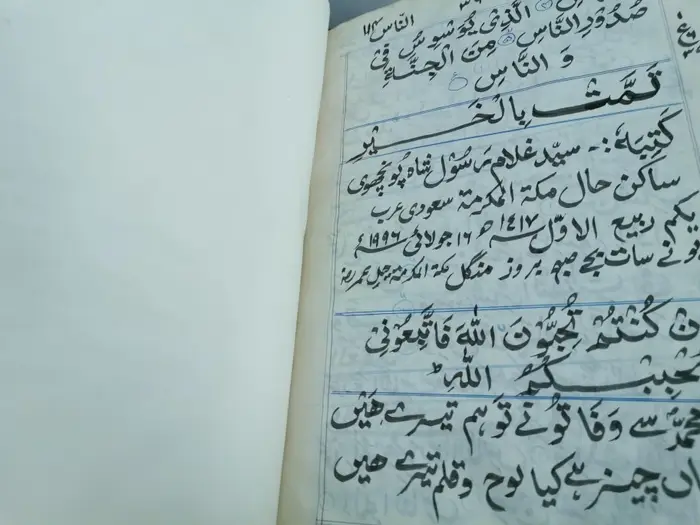 الناس ۱۱۴
صُدُوْرِ النَّاسِ الَّذِیْ یُوَسْوِسُ فِیْ
مِنَ الْجِنَّةِ
وَ النَّاسِ
تَمَّتْ بِالْخَیْرِ
کَتِبَهٗ :- سیّد غلام رسُول شاہ پُونچھوی
ساکن حال مکة المکرمة سعودی عرب
یکم ربیع الاوّل ۱۴۱۷ھ ۱۶ جولائی ۱۹۹۶ء
پونے سات بجے صبح بروز منگل مکة المکرمة
کُنْتُمْ تُحِبُّوْنَ اللّٰهَ فَاتَّبِعُوْنِیْ
یُحْبِبْکُمُ اللّٰهُ ط
محمدؐ سے وَفا تُونے تو ہم تیرے ہَیں
چیز ہے کیا لوح و قلم تیرے ہیں